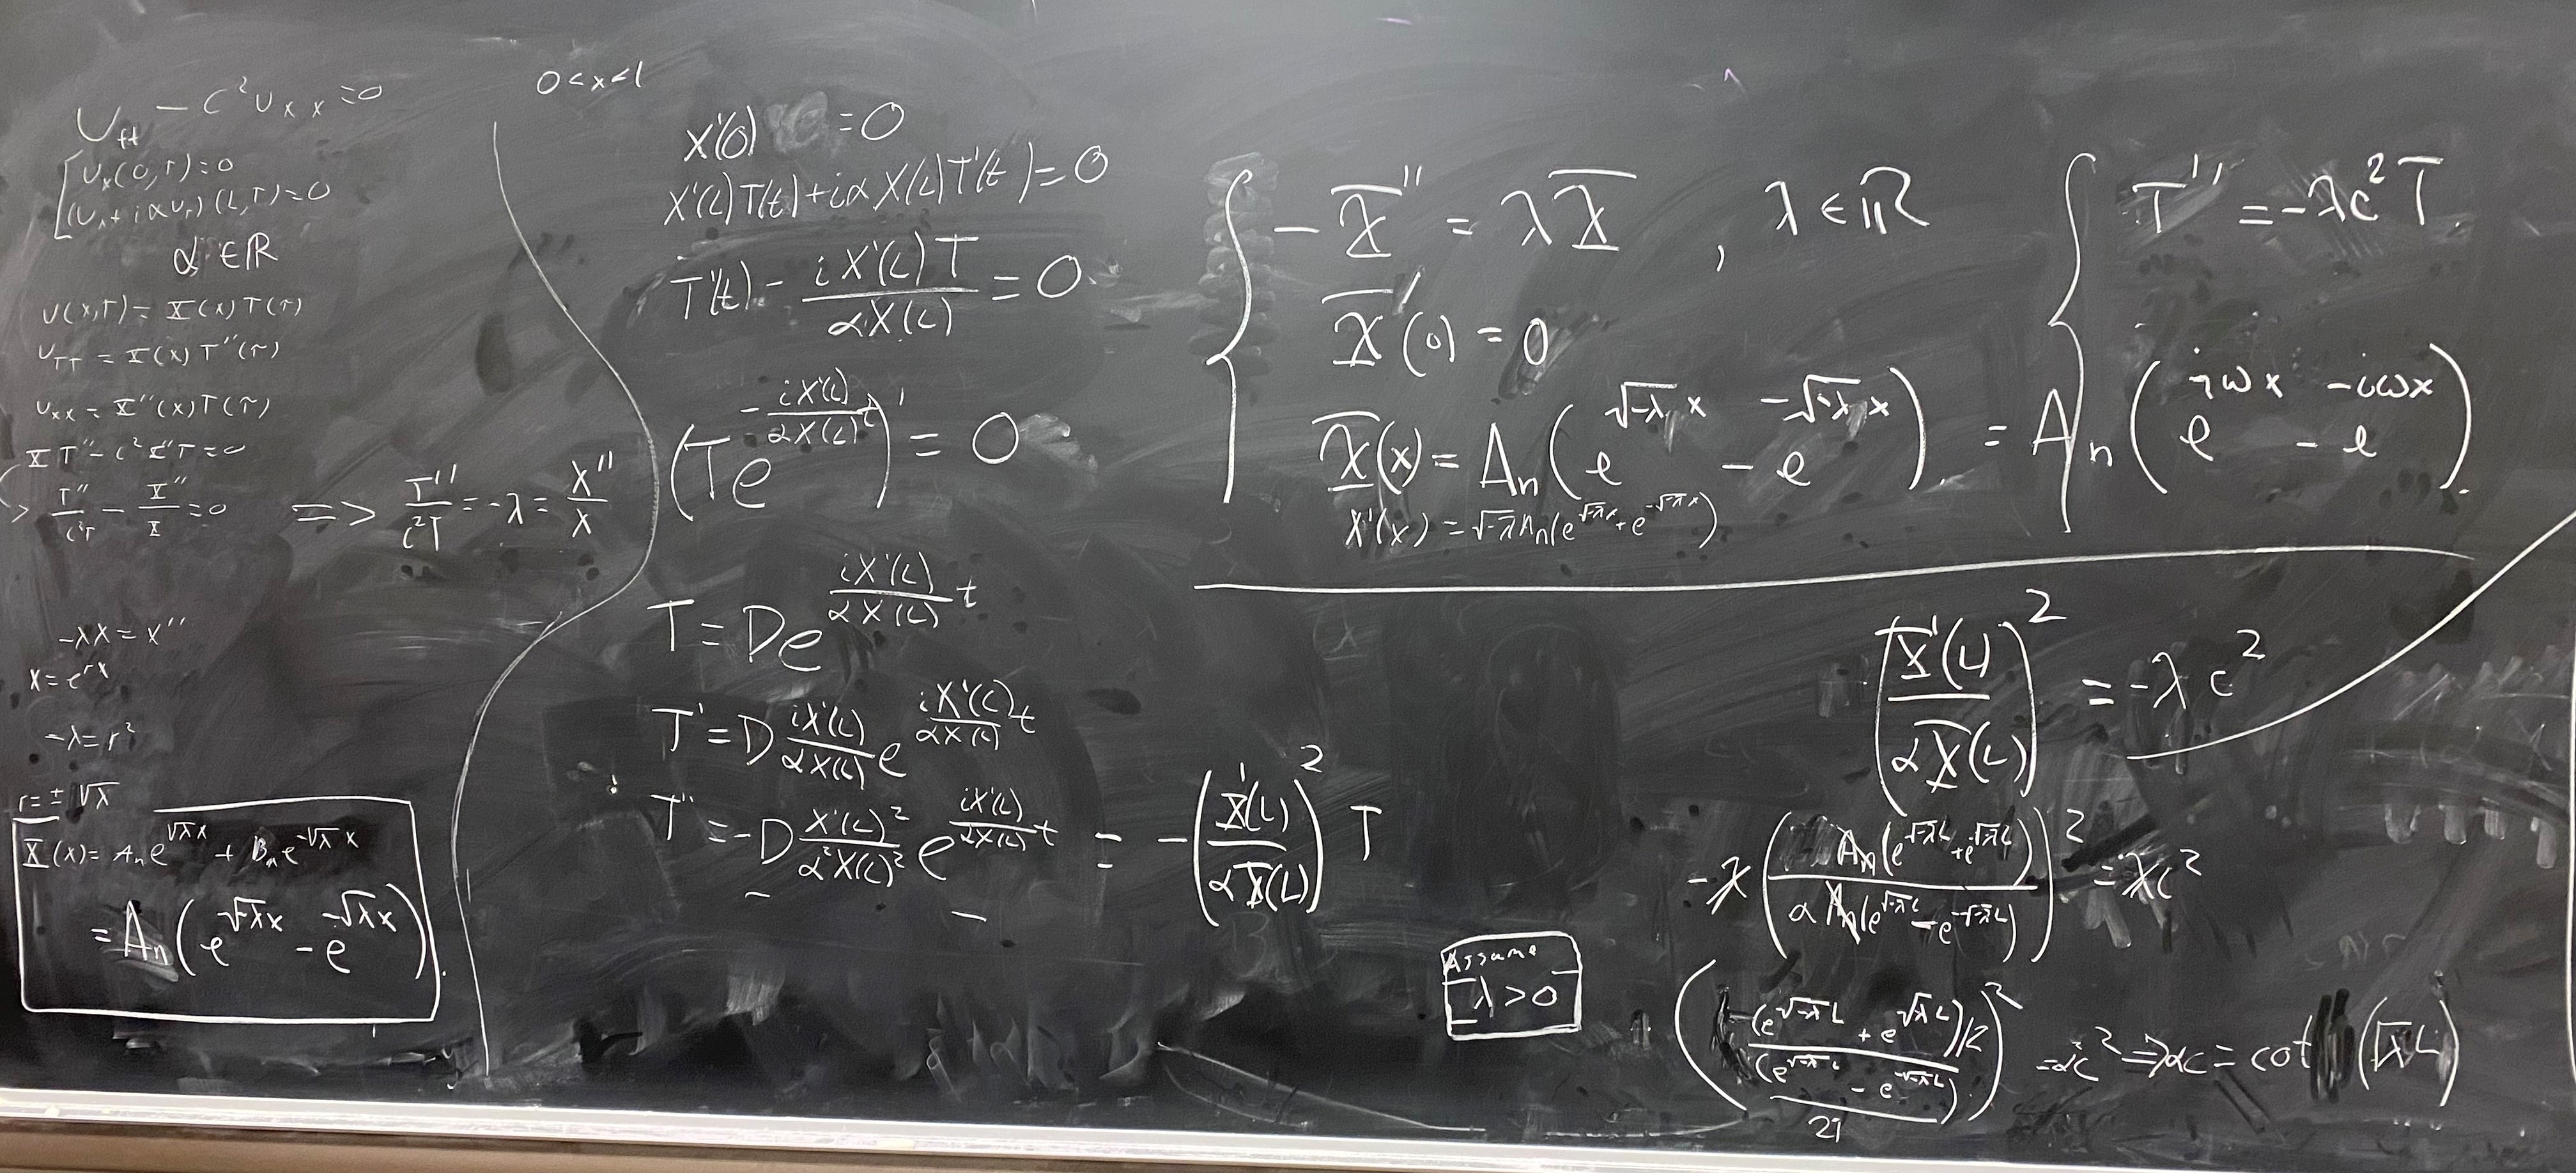 U_tt − c²u_xx = 0
u_x(0,τ) = 0
(u_x + iαu_τ)(L,τ) = 0
α ∈ ℝ
u(x,τ) = X(x)T(τ)
u_ττ = X(x)T''(τ)
u_xx = X''(x)T(τ)
XT'' − c²X''T = 0
> T''/c²T − X''/X = 0 => T''/c²T = −λ = X''/X
−λX = X''
X = e^{rx}
−λ = r²
r = ± √-λ
X(x) = A_n e^{√-λ x} + B_n e^{-√-λ x}
= A_n(e^{√-λ x} − e^{-√-λ x})
0 < x < l
X'(0) = 0
X'(L)T(t) + iαX(L)T'(t) = 0
T'(t) − iX'(L)T/αX(L) = 0
(Te^{−iX'(L)/αX(L) t})' = 0
T = De^{iX'(L)/αX(L) t}
T' = D iX'(L)/αX(L) e^{iX'(L)/αX(L) t}
T'' = −D X'(L)²/α²X(L)² e^{iX'(L)/αX(L) t} = −(X'(L)/αX(L))² T
−X'' = λX , λ ∈ ℝ
X'(0) = 0
X(x) = A_n(e^{√-λ x} − e^{-√-λ x}) = A_n(e^{iωx} − e^{-iωx}).
X'(x) = √-λ A_n(e^{√-λ x} + e^{-√-λ x})
T'' = −λc²T
(X'(L)/αX(L))² = −λc²
−λ(A_n(e^{√-λ L} + e^{√-λ L})/αA_n(e^{√-λ L} − e^{-√-λ L}))² = λc²
Assume
λ > 0
((e^{√-λ L} + e^{√-λ L})/2/(e^{√-λ L} − e^{-√-λ L})/2i)² = αc² => αc = cot(√λ L)